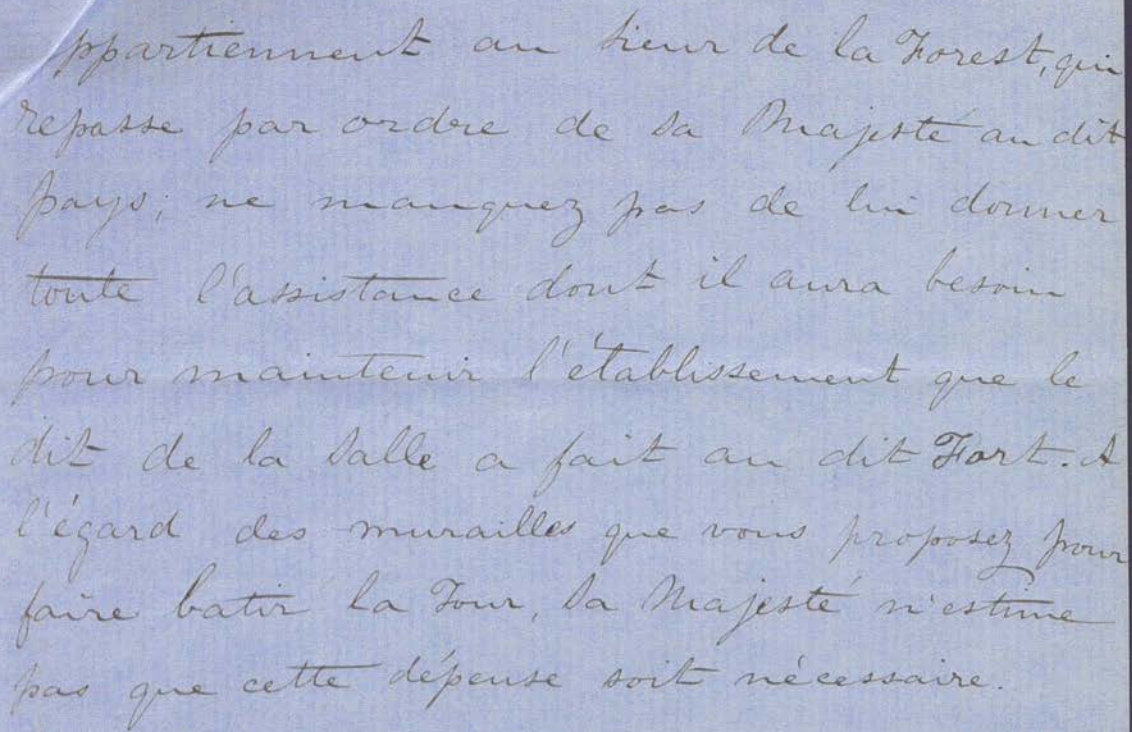 ppartiennent au Sieur de la Forest, qui
repasse par ordre de Sa Majesté au dit
pays; ne manquez pas de lui donner
toute l'assistance dont il aura besoin
pour maintenir l'établissement que le
dit de la Salle a fait au dit Fort. A
l'égard des murailles que vous proposez pour
faire batir la Tour, Sa Majesté n'estime
pas que cette dépense soit nécessaire.